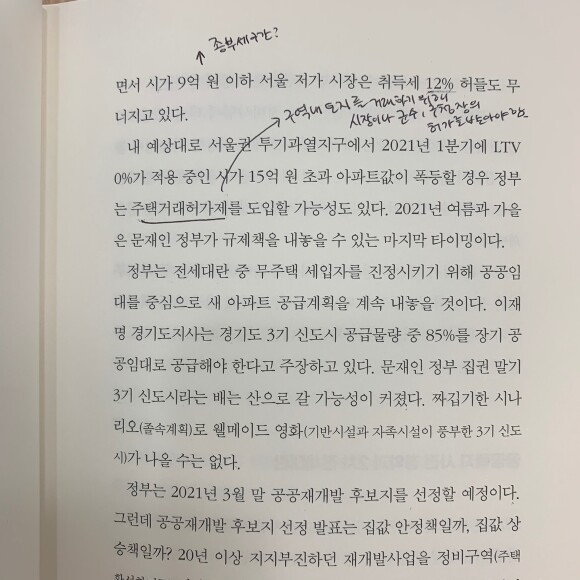 종부세구간?
면서 시가 9억 원 이하 서울 저가 시장은 취득세 12% 허들도 무
너지고 있다.
구역내 토지를 거래하기 위해
시장이나 군수, 구청장의
허가를 받아야 함
내 예상대로 서울권 투기과열지구에서 2021년 1분기에 LTV
0%가 적용 중인 시가 15억 원 초과 아파트값이 폭등할 경우 정부
는 주택거래허가제를 도입할 가능성도 있다. 2021년 여름과 가을
은 문재인 정부가 규제책을 내놓을 수 있는 마지막 타이밍이다.
정부는 전세대란 중 무주택 세입자를 진정시키기 위해 공공임
대를 중심으로 새 아파트 공급계획을 계속 내놓을 것이다. 이재
명 경기도지사는 경기도 3기 신도시 공급물량 중 85%를 장기 공
공임대로 공급해야 한다고 주장하고 있다. 문재인 정부 집권 말기
3기 신도시라는 배는 산으로 갈 가능성이 커졌다. 짜깁기한 시나
리오(졸속계획)로 웰메이드 영화(기반시설과 자족시설이 풍부한 3기 신도
시)가 나올 수는 없다.
정부는 2021년 3월 말 공공재개발 후보지를 선정할 예정이다.
그런데 공공재개발 후보지 선정 발표는 집값 안정책일까, 집값 상
승책일까? 20년 이상 지지부진하던 재개발사업을 정비구역(주택